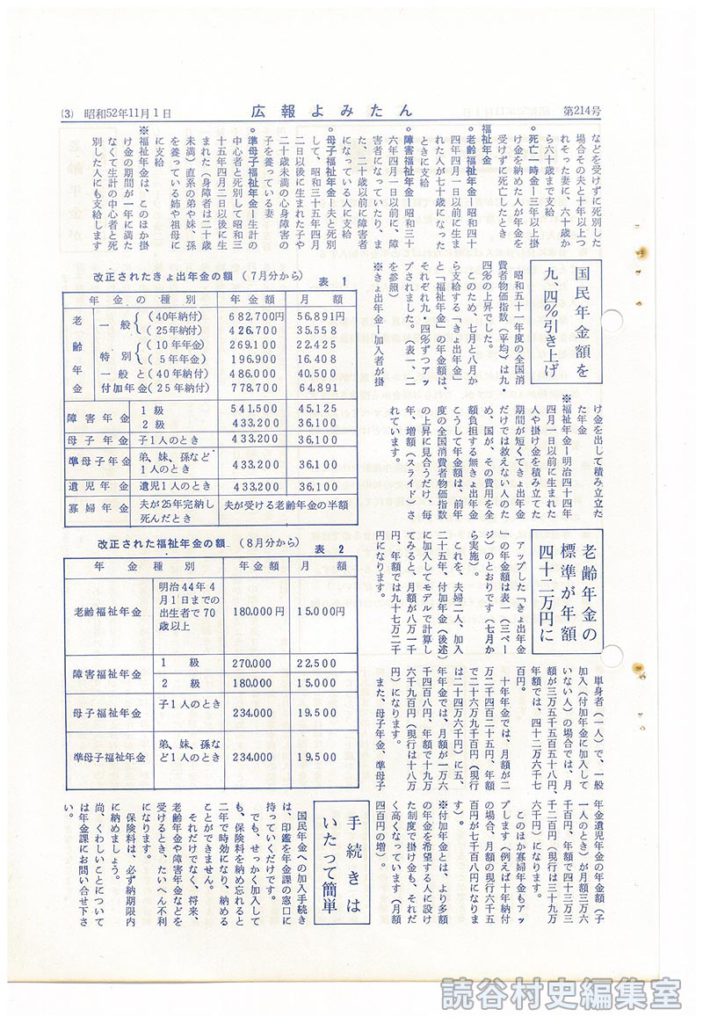 (3) 昭和52年11月1日
広報よみたん
第214号
などを受けずに死別した
場合その夫と十年以上つ
れそった妻に、六十歳か
ら六十歳まで支給
◦死亡一時金―三年以上掛
け金を納めた人が年金を
受けずに死亡したとき
福祉年金
◦老齢福祉年金―昭和四十
四年四月一日以前に生ま
れた人が七十歳になった
ときに支給
◦障害福祉年金―昭和三十
六年四月一日以前に、障
害者になっていたり、ま
た、二十歳以前に障害者
になっている人に支給
◦母子福祉年金―夫と死別
して、昭和三十五年四月
二日以後に生まれた子や
二十歳未満の心身障害の
子を養っている妻
◦準母子福祉年金―生計の
中心者と死別して昭和三
十五年四月二日以後に生
まれた(身障者は二十歳
未満)直系の弟や妹、孫
を養っている姉や祖母に
に支給
※福祉年金は、このほか掛
け金の期間が一年に満た
なくて生計の中心者と死
別した人にも支給します
国民年金額を
九、四%引き上げ
昭和五十一年度の全国消
費者物価指数(平均)は九・
四%の上昇でした。
このため、七月と八月か
ら支給する「きょ出年金」
と「福祉年金」の年金額は、
それぞれ九・四%ずつアッ
プされました。(表一、二
を参照)
※きょ出年金―加入者が掛
け金を出して積み立立た
た年金
※福祉年金―明治四十四年
四月一日以前に生まれた
人や掛け金を積み立てた
期間が短くてきょ出年金
だけでは救えない人のた
め、国が、その費用を全
額負担する無きょ出年金
こうして年金額は、前年
度の全国消費者物価指数
の上昇に見合うだけ、毎
年、増額(スライド)さ
れています。
老齢年金の
標準が年額
四十二万円に
アップした「きょ出年金
」の年金額は表一(三ペー
ジ)のとおりです(七月か
ら実施)。
これを、夫婦二人、加入
二十五年、付加年金(後述)
に加入してモデルで計算し
てみると、月額が八万一千
円、年額では九十七万二千
円になります。
単身者(一人)で、一般
加入(付加年金に加入して
いない人)の場合では、月
額が三万五千五百五十八円、
年額では、四十二万六千七
百円。
十年年金では、月額が二
万二千四百二十五円、年額
で二十六万九千百円(現行
は二十四万六千円)に五、
年年金では、月額が一万六
千四百八円、年額で十九万
六千九百円(現行は十八万
円)になります。
また、母子年金、準母子
年金遺児年金の年金額(子
一人のとき)が月額三万六
千百円、年額で四十三万三
千二百円(現行は三十九万
六千円)になります。
このほか寡婦年金もアッ
プします(例えば十年納付
の場合、月額の現行六千五
百円が七千百八円になりま
す)。
※付加年金とは、より多額
の年金を希望する人に設け
た制度で掛け金も、それだ
く高くなっています(月額
四百円の増)。
手続きは
いたって簡単
国民年金への加入手続き
は、印鑑を年金課の窓口に
持っていくだけです。
でも、せっかく加入して
も、保険料を納め忘れると
二年で時効になり、納める
ことができません。
それだけでなく、将来、
老齢年金や障害年金などを
受けるとき、たいへん不利
になります。
保険料は、必ず納期限内
に納めましょう。
尚、くわしいことについて
は年金課にお問い合せ下さ
い。
改正されたきょ出年金の額(7月分から) 表1
年金の種別 年金額 月額
老齢年金
一般 (40年納付) 682.700円 56.891円
(25年納付) 426.700 35.558
特別 (10年年金) 269.100 22.425
(5年年金) 196.900 16.408
一般と (40年納付) 486.000 40.500
付加年金 (25年納付) 778.700 64.891
障害年金 1級 541.500 45.125
2級 433.200 36.100
母子年金 子1人のとき 433.200 36.100
準母子年金 弟、妹、孫など1人のとき 433.200 36.100
遺児年金 遺児1人のとき 433.200 36.100
寡婦年金 夫が25年完納し死んだとき 夫が受ける老齢年金の半額
改正された福祉年金の額(8月分から) 表2
年金種別 年金額 月額
老齢福祉年金 明治44年4月1日までの出生者で70歳以上 180.000円 15.000円
障害福祉年金 1級 270.000 22.500
2級 180.000 15.000
母子福祉年金 子1人のとき 234.000 19.500
準母子福祉年金 弟、妹、孫など1人のとき 234.000 19.500
読谷村史編集室